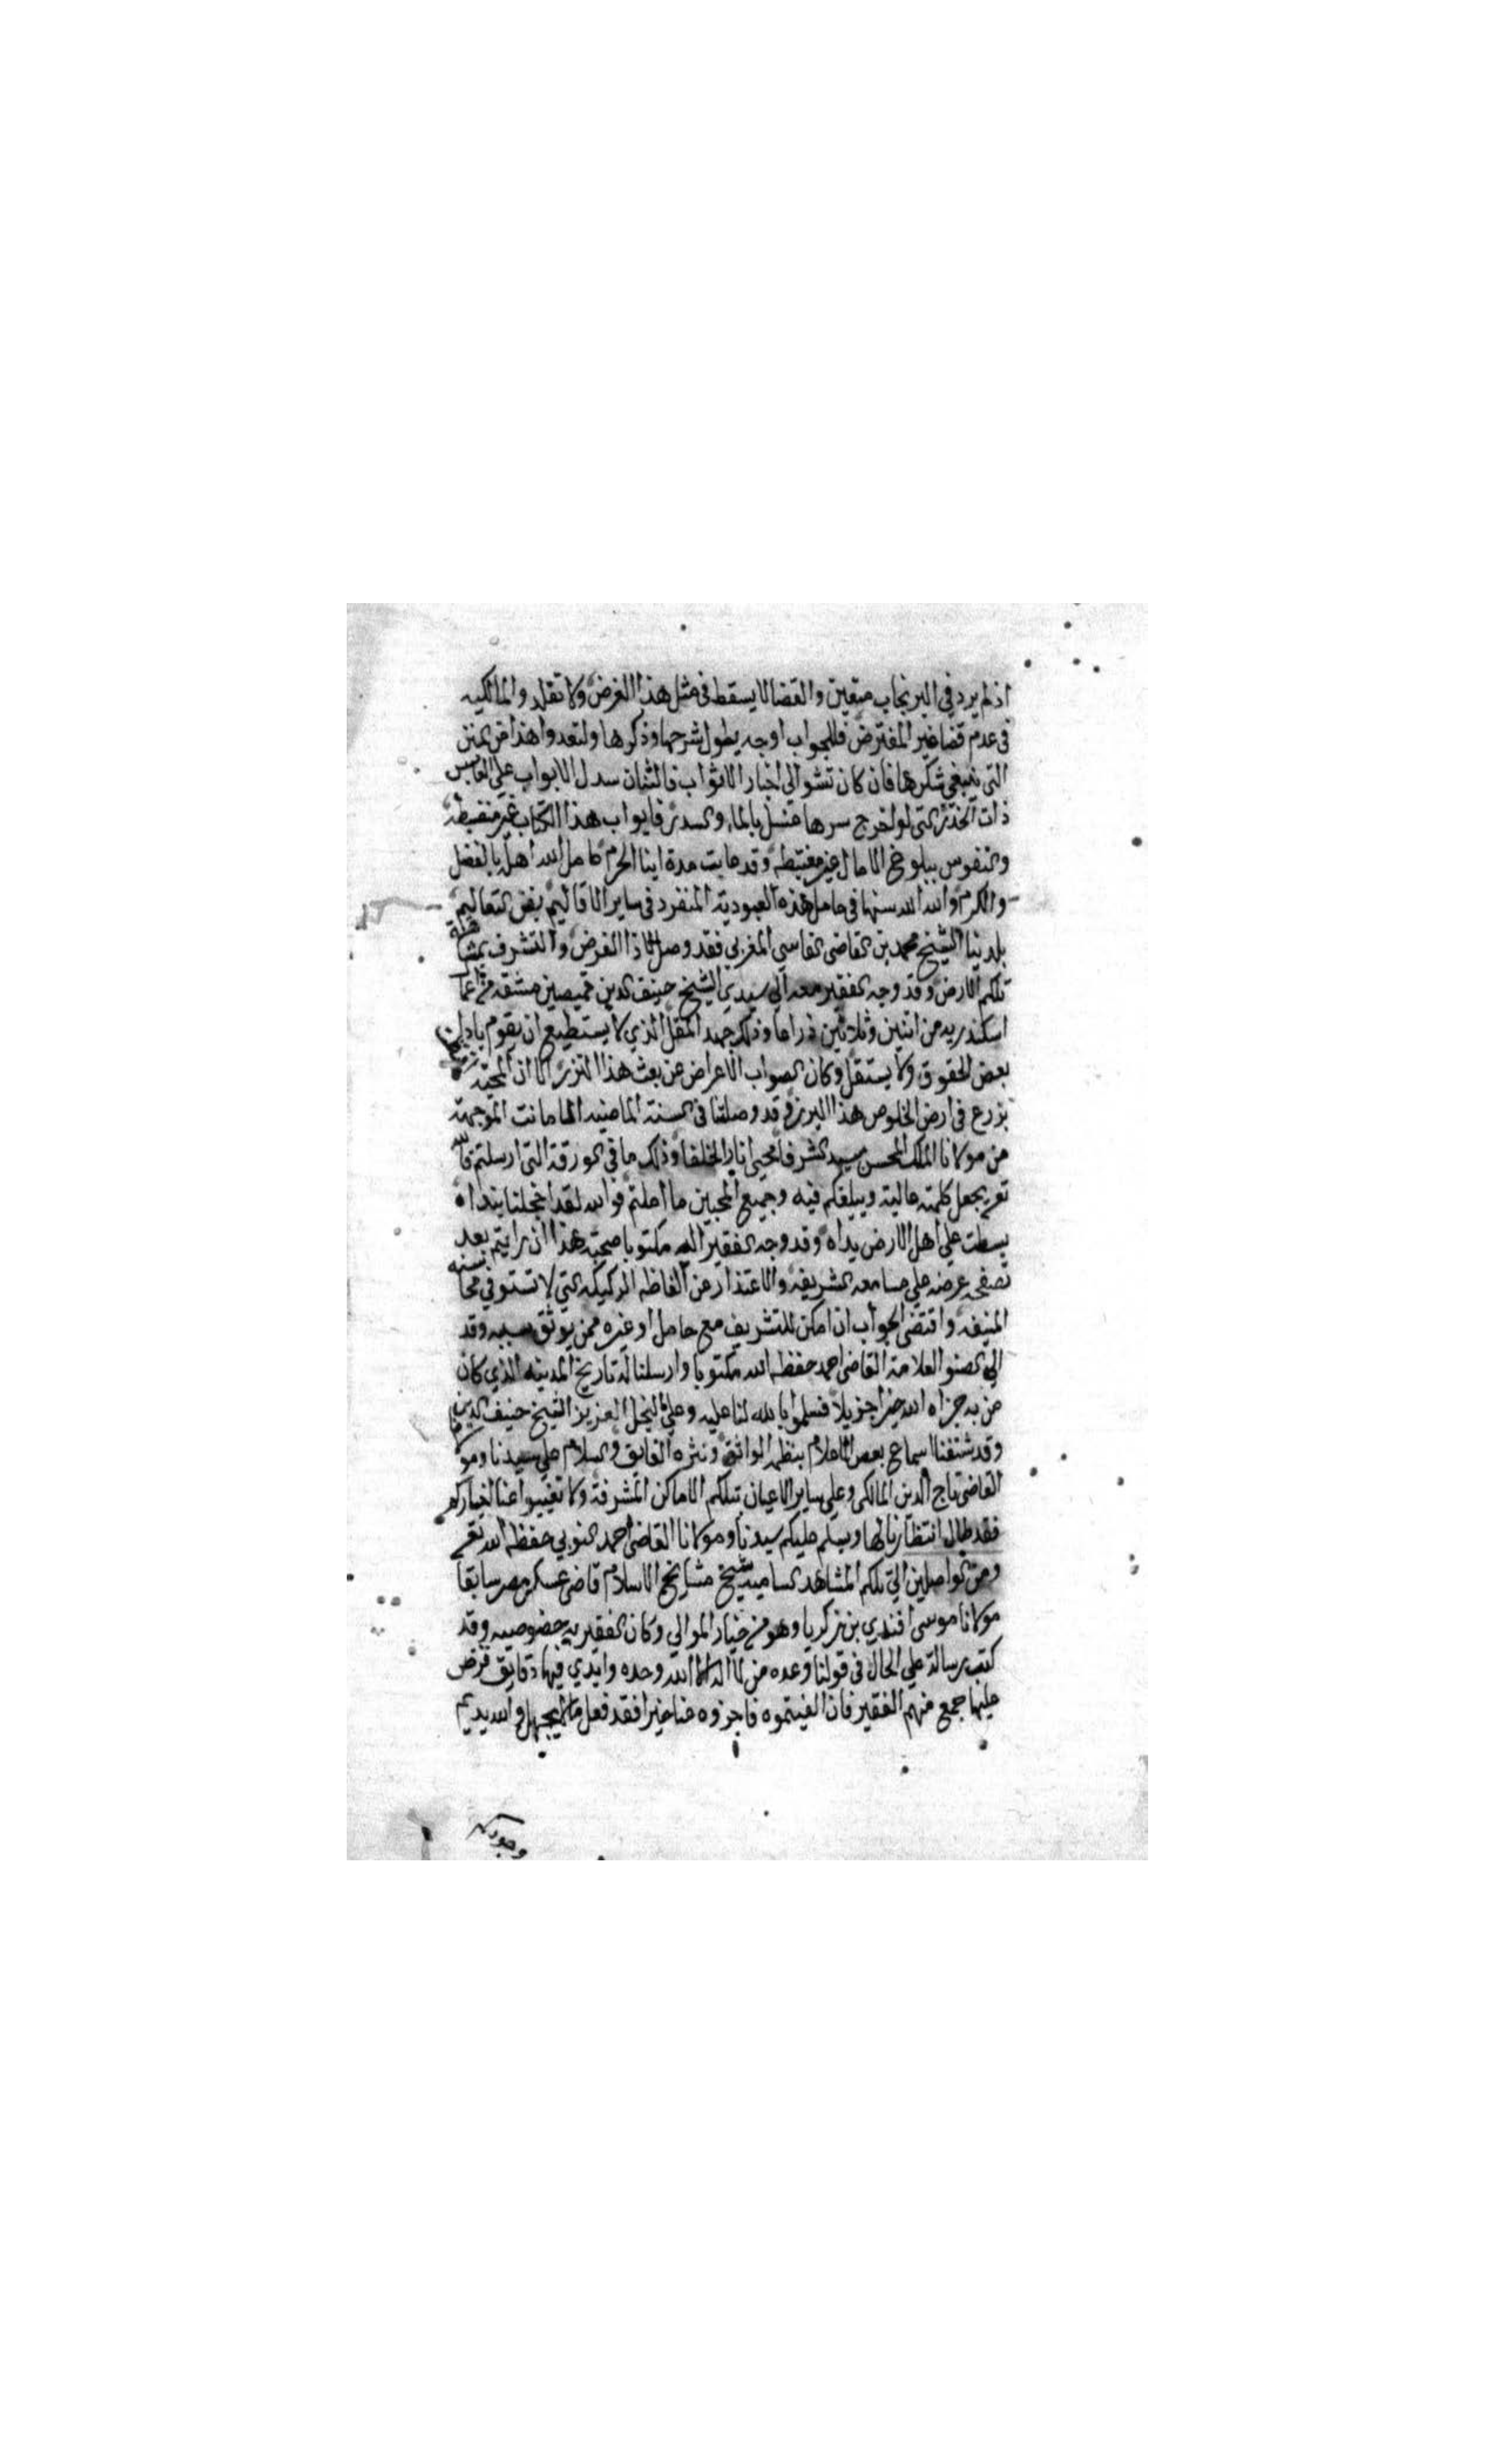 اذ لم يرد في البر نجاب متعين والقضا لا يسقط في مثل هذا الغرض ولا تقلد والمالكيه
في عدم قضا غير المفترض فللجواب اوجه يطول شرحها وذكرها ولتعدوا هذا من المنن
التي ينبغي شكرها فان كان تشو الى اخبار الاثواب فالشان سدل الابواب على
ذات التي لو لخرج سرها بالماء والسدر فابواب هذا الكتاب غير منضبطه
والنفوس ببلوغ الامال غير مغتبطه وقد مدة اينا الحرم عامل الله اهله بالفضل
والكرم والله الله سنها في حامل هذه العبودية المنفرد في ساير الاقاليم بفن التعاليم
بلدينا الشيخ محمد بن القاضي الفاسي المغربي فقد وصل لاذا الفرض والتشرف بمشاهدة
تلكم الارض وقد وجه الفقير معه الى سيدي الشيخ حنيف الدين قميصين مشقه من عمل
اسكندريه من اثنين وثلاثين ذراعا وذلك جهد المقل الذي لا يستطيع ان يقوم باداء
بعض الحقوق ولا يستقل وكان الصواب الاعراض عن بعث هذا النزر الا ان المحبة
بزرع في ارض الخلوص هذا البزر وقد وصلتنا في السنة الماضيه الموجهة
من مولانا الملك المحسن سيد الشرفا محيي اثار الخلفا وذلك ما في الورقة التي ارسلتم فالله
تعالى يجعل كلمته عالية ويبلغكم فيه وجميع المحبين ما املتم فوالله لقد اخجلنا بنداه
بسطت على اهل الارض يداه وقد وجه الفقير اليه مكتوبا صحبته هذا ان رايتم بعد
تصفحه عرضه على مسامعه الشريفه والاعتذار عن الفاظه الركيكه التي لا تستوفي محاسنه
المنيفه واقتضى الجواب ان امكن للتشريف مع حامل او غيره ممن يوثق بسببه وقد
الى الصنو العلامة القاضي احمد حفظه الله مكتوبا وارسلنا له تاريخ المدينه الذي كان
من به جزاه الله خيرا جزيلا فسلموا بالله لنا عليه وعلى النجل العزيز الشيخ حنيف الدين
وقد شنفنا اسماع بعض الاعلام بنظمه الواثق ونثره الفايق والسلام على سيدنا ومولانا
القاضي تاج الدين المالكي وعلى ساير الاعيان بتلكم الاماكن المشرفة ولا تغيبوا عنا اخباركم
فقد طال انتظارنا لها ويسلم عليكم سيدنا ومولانا القاضي احمد النوبي حفظه الله تعالى
ومن الواصلين الى تلكم المشاهد الساميه شيخ مشايخ الاسلام قاضي عسكر مصر سابقا
مولانا موسى افندي بن زكريا وهو من خيار الموالي وكان للفقير به خصوصيه وقد
كتب رسالة على الحال في قولنا وعده من لا اله الا الله وحده وابدى فيها دقايق قرض
عليها جمع منهم الفقير فان الفيتموه فاجزوه عنا خيرا فقد فعل ما لا يجهل والله يديم
وجودكم